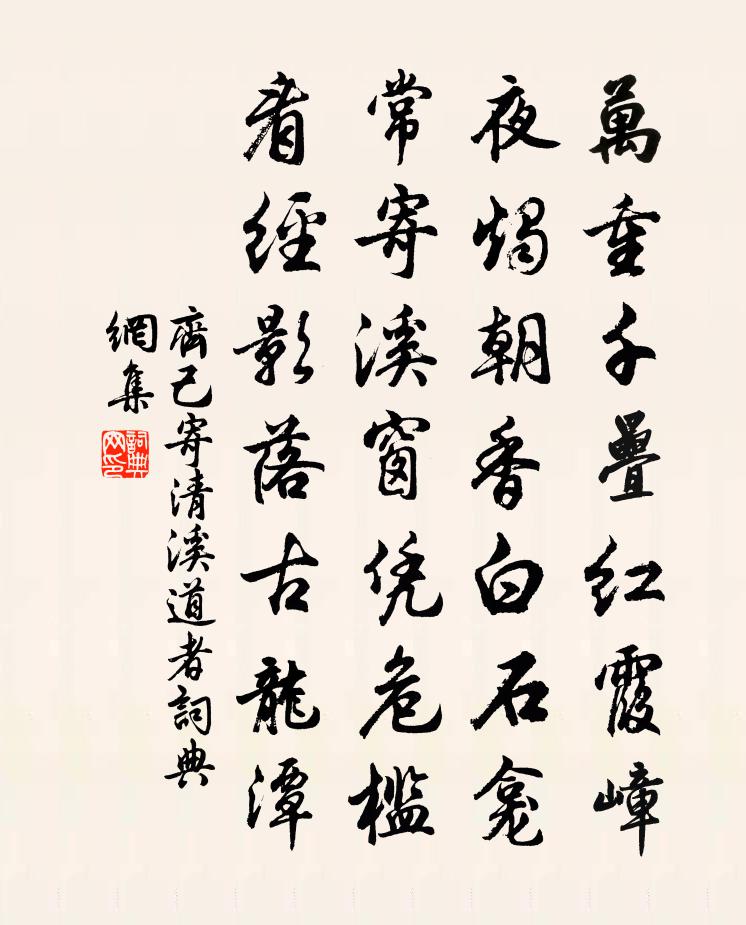 萬重千疊紅霞嶂
夜燭朝香白石龕
常寄溪窗凭危檻
看經影落古龍潭
齊己寄清溪道者詞典
網集
詞典
网印